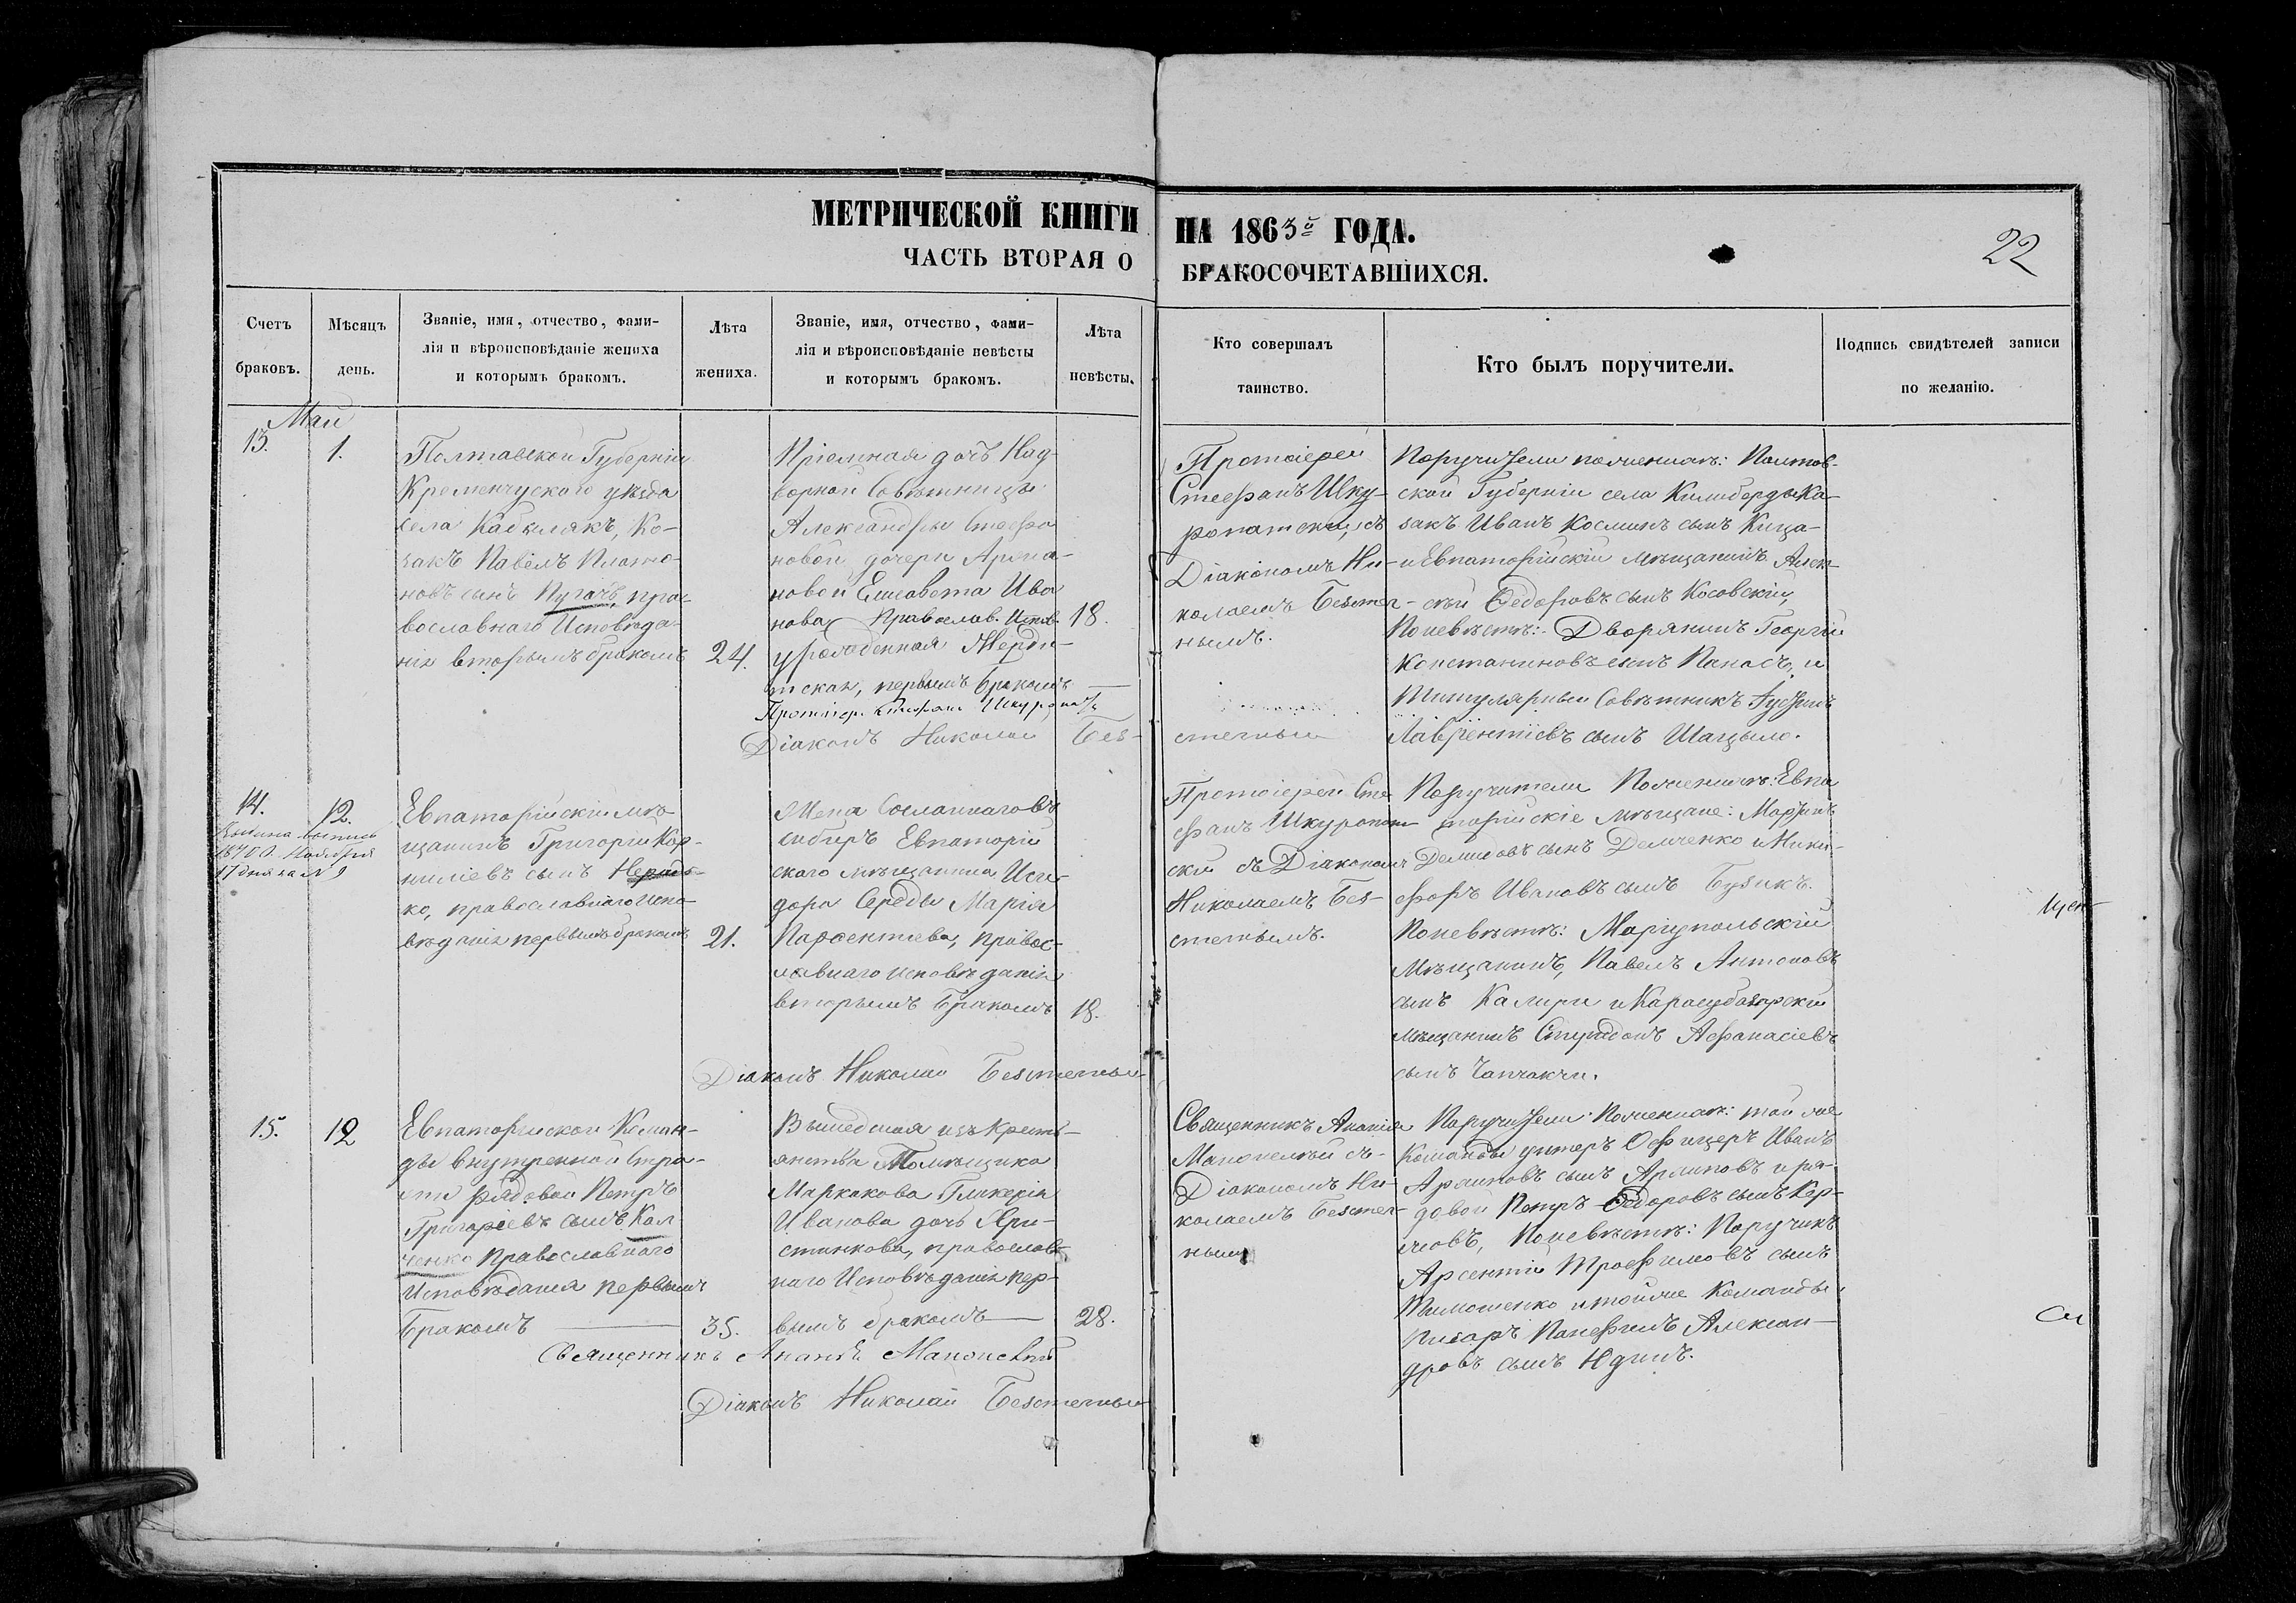 МЕТРИЧЕСКОЙ КНИГИ НА 1863о ГОДА.
ЧАСТЬ ВТОРАЯ О БРАКОСОЧЕТАВШИХСЯ.
22
Счетъ браковъ.
Мѣсяцъ день.
Званіе, имя, отчество, фами-
лія и вѣроисповѣданіе жениха
и которымъ бракомъ.
Лѣта жениха.
Званіе, имя, отчество, фами-
лія и вѣроисповѣданіе невѣсты
и которымъ бракомъ.
Лѣта невѣсты.
Кто совершалъ
таинство.
Кто былъ поручители.
Подпись свидѣтелей записи
по желанію.
Маи
13.
1.
Полтавской Губерніи
Кременчускаго уѣзда
села Кабылякъ, Ко-
закъ Павелъ Плато-
новъ сынъ Пугачъ, пра-
вославнаго Исповѣда-
нія вторымъ бракомъ
24.
Пріемная дочь Над-
ворной Совѣтницы
Александры Стефа
новой дочери
новой Елисавета Ива
нова Православ. Испов.
урожденная
первымъ бракомъ
18.
Діаконъ Николай Без-
стетный
Протоіерей
Стефанъ Шку-
ропатскій, съ
Діакономъ Ни-
колаемъ Безстет-
нымъ.
Поручители по женихѣ: Полтав-
ской Губерніи села Келеберды Ка-
закъ Иванъ Косминъ сынъ Кица-
и Евпаторійскій мѣщанинъ Алек-
сѣй Ѳедоровъ сынъ Косовскій,
По невѣстѣ: Дворянинъ Георгій
Константиновъ сынъ Панасъ, и
Титулярный Совѣтникъ
Лаврентіевъ сынъ
14.
12.
1870 г. Ноября
17 дня за № 9
Евпаторійскій мѣ-
щанинъ Григорій Кор-
ниліевъ сынъ
ко, православнаго Испо-
вѣданія первымъ бракомъ
21.
Жена Сосланнаго въ
сибирь Евпаторій
скаго мѣщанина Иси-
дора Середы Марія
Парѳентіева, правос-
лавнаго исповѣданія
вторымъ бракомъ
18.
Діаконъ Николай Безстетный
Протоіерей Сте
фанъ Шкуропат
скій съ Діакономъ
Николаемъ Без-
стетнымъ.
Поручители По женихѣ: Евпа
торійскіе мѣщане: Мартинъ
Демидовъ сынъ Демченко и Ники-
форъ Ивановъ сынъ Бузикъ.
По невѣстѣ: Маріупольскій
Мѣщанинъ, Павелъ Антоновъ
сынъ Калири и Карасубазарскій
мѣщанинъ Спиридонъ Афанасіевъ
сынъ Чапчакчи.
15.
12
Евпаторійской Коман-
ды внутренной Стра-
жи рядовой Петръ
Григоріевъ сынъ Кал
ченко Православнаго
Исповѣданія первымъ
бракомъ
35.
Вышедшая изъ Кресть-
янства Помѣщика
Маркакова Гликерія
Иванова дочь Хри-
стинкова, православ-
наго Исповѣданія пер-
вымъ бракомъ
28.
Священникъ Ананій
Діаконъ Николай Безстетный
Священникъ Ананія
съ
Діакономъ Ни-
колаемъ Безстет-
нымъ
Поручители По женихѣ: той же
Команды унтеръ Офицеръ Иванъ
Архиповъ сынъ Архиповъ и ря-
довой Петръ Ѳедоровъ сынъ Кар-
повъ, По невѣстѣ: Поручикъ
Арсентій Трофимовъ сынъ
Тимошенко и тойже Команды
писарь Панфилъ Алексан-
дровъ сынъ Юдинъ.